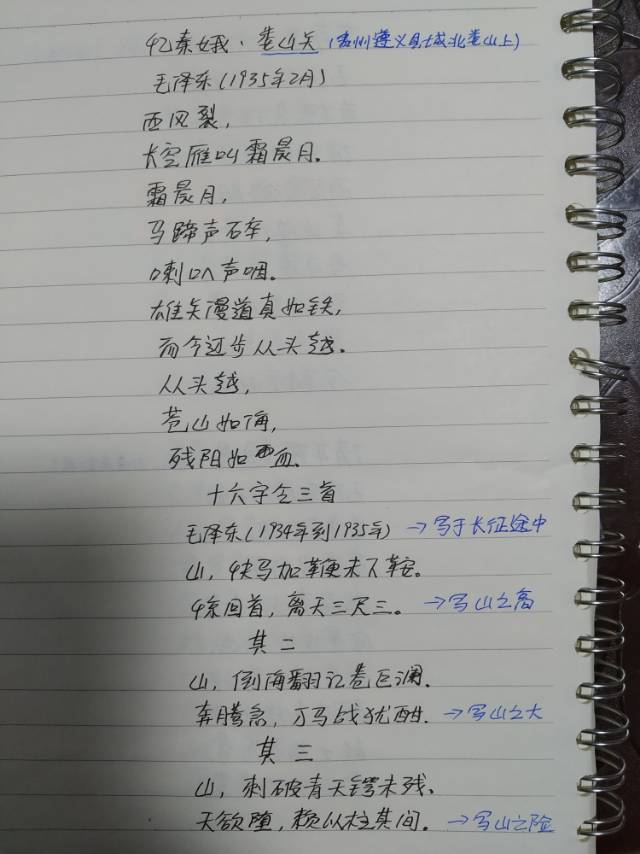 忆秦娥·娄山关(贵州遵义县城北娄山上)
毛泽东(1935年2月)
西风裂,
长空雁叫霜晨月.
霜晨月,
马蹄声碎,
喇叭声咽.
雄关漫道真如铁,
而今迈步从头越.
从头越,
苍山如海,
残阳如血.
十六字令三首
毛泽东(1934年到1935年) →写于长征途中
山,快马加鞭未下鞍。
惊回首,离天三尺三。→写山之高
其二
山,倒海翻江卷巨澜.
奔腾急,万马战犹酣. →写山之大
其三
山,刺破青天锷未残.
天欲堕,赖以柱其间。→写山之险